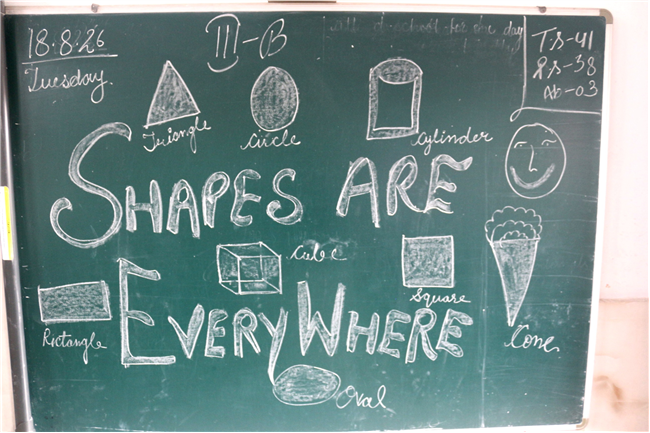 18.8.26
Tuesday.
III-B
T.S-41
P.S-38
Ab-03
Triangle
Circle
Cylinder
SHAPES ARE
Cube
Square
Rictangle
EVERYWHERE
Cone
Oval